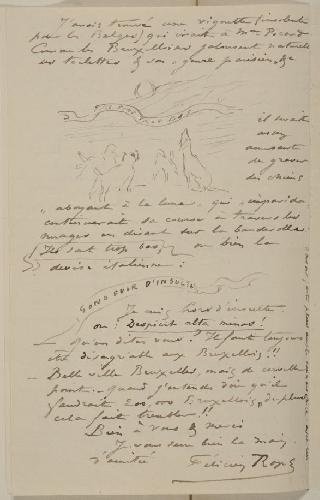 J'avais trouvé une vignette (insolente
pour les Belges) qui irait à Mme Picard
Comme les Bruxellois jalousent naturelle
ses toilettes & son "genre parisien", &
ILS SONT TROP BAS
il serait
assez
amusant
de graver
des chiens
"aboyant à la lune" qui impavide
continuerait sa course à travers les
nuages en disant sur la banderolle
Ils sont trop bas, ou bien la
devise italienne :
SONO FUOR D'INSULTO
Je suis hors d'insulte.
ou : Despicit alta minus!
Qu'en dites vous? Il faut toujours
être désagréable aux Bruxellois!!
Belle ville Bruxelles, mais de cervelle
point. Quand j'entends dire qu'il
faudrait 200,000 Bruxellois de plus,
cela fait trembler!!
Bien à vous & merci
Je vous serre bien la main
d'amitié Félicien Rops